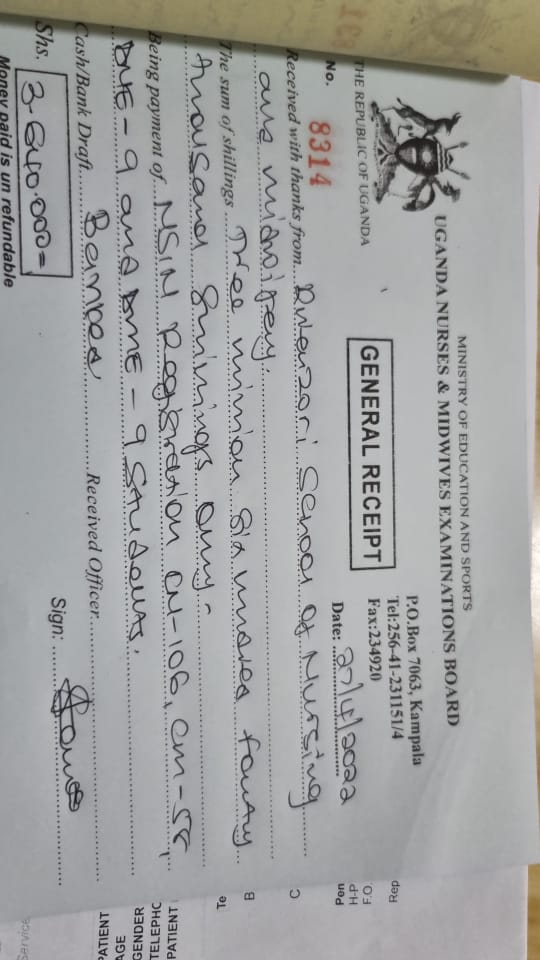 MINISTRY OF EDUCATION AND SPORTS
UGANDA NURSES & MIDWIVES EXAMINATIONS BOARD
THE REPUBLIC OF UGANDA
P.O.Box 7063, Kampala
Tel:256-41-231151/4
Fax:234920
GENERAL RECEIPT
No. 8314
Date: 27/4/2022
Received with thanks from Rwenzori School of Nursing
and midwifery.
The sum of shillings Three million Six hundred fourty
thousand Shillings only
Being payment of NSIN Registration CN-106, CM-58,
DNE-9 and DME-9 Students,
Cash/Bank Draft Banked Received Officer
Shs. 3,640,000=
Sign:
Money paid is un refundable
Rep
F.O.
H-P
Pen
C
B
Te
PATIENT
TELEPHC
GENDER
AGE
PATIENT
Service